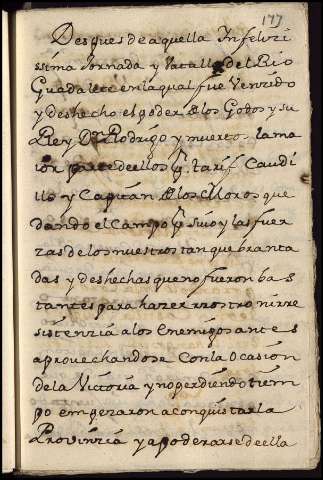 177
Despues de aquella Infelizi
ssima Jornada y vatalla del Rio
Guadalete en la qual fue Venzido
y deshecho el poder de los Godos y su
Rey Dn Rodrigo y muerto la ma
ior parte de ellos
Tarif Caudi
llo y Capitan de los Moros que
dando el Campo
suio y las fuer
zas de los nuestros tan que branta
das y deshechas que no fueron bas
tantes para hazer rrostro ni rre
sistenzia a los Enemigos antes
aprovechandose Con la Ocasion
de la Victoria y no perdiendo tiem
po empezaron a conquistar la
Provinzia y apoderarse de ella